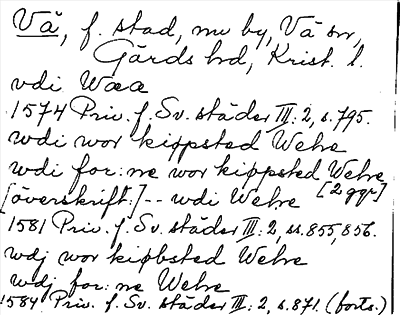 Vä, f. stad, nu by, Vä sn,
Gärds hd, Krist. l.
vdi Wæa
1574 Priv. f. Sv. städer III: 2, s. 795.
wdi wor kippsted Wehe
wdi for: ne wor kippsted Wehe
[överskrift:] -- wdi Wehe [2 ggr]
1581 Priv. f. Sv. städer III: 2, ss. 855, 856.
wdj wor kipbsted Wehe
wdj for: ne Wehe
1584 Priv. f. Sv. städer III: 2, s. 871. (forts.)